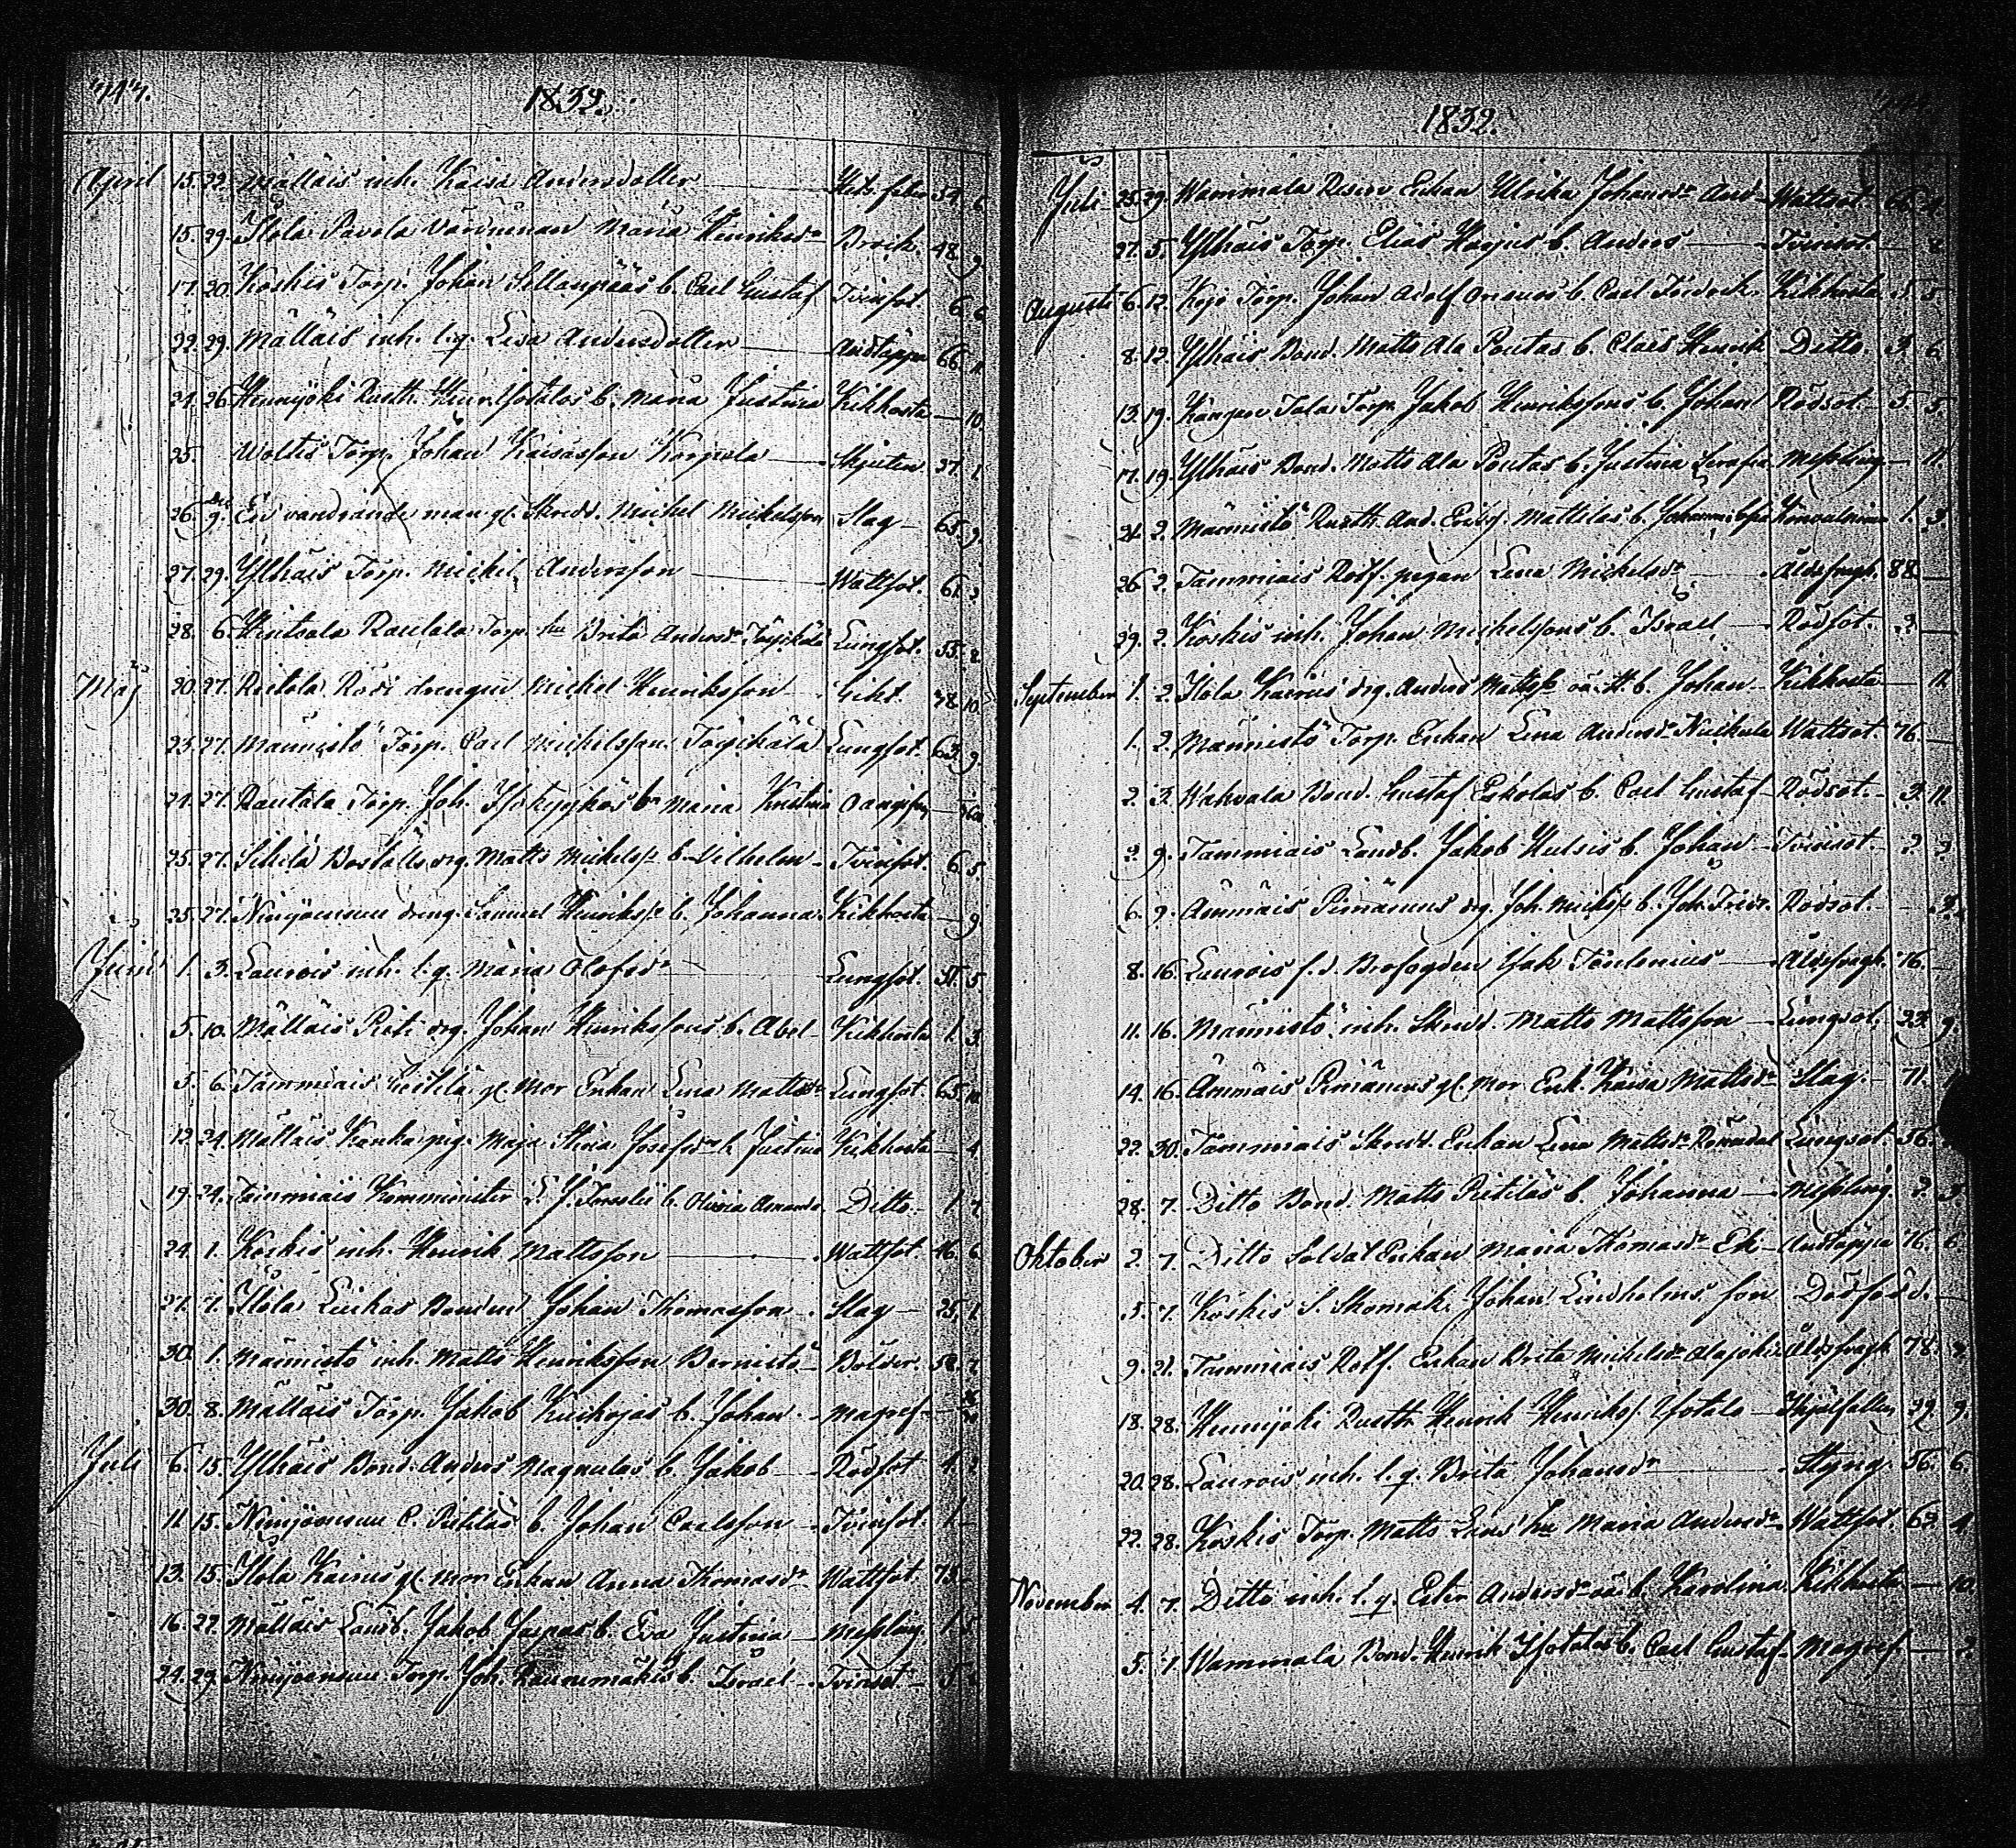 1832.
April 15. 22. Mälläis inh. Kaisa Andersdotter 54. 6.
15. 29. Illola Pavola Värdinnan Maria Henriksdr Bråck. 48. 9.
17. 20. Koskis Torp. Johan Sillanpääs b. Carl Gustaf Tvinsot. 6. 6.
22. 29. Mälläis inh. l. q. Lisa Andersdotter Andtäppa 66. 11.
24. 26. Hennijoki Rusth. Henr. Yotalos b. Maria Justina Kikhosta — 10.
25. Woltis Torp. Johan Kaisasson Korpela Skjuten 27. 1.
26. 9. En vandrande man gl. Skrädd. Michel Michelsson Slag 63. 9.
27. 29. Yllhäis Torp. Michel Andersson Wattsot. 61.
28. 6. Hintsala Rautala Torp. hu Brita Andersdr Lungsot. 55. 2.
Maj 20. 27. Ritala Rosi drängen Michel Henriksson Gikt. 78. 10.
23. 27. Männistö Torp. Carl Michelsson Torpikälä Lungsot. 63. 9.
24. 27. Rautala Torp. Joh. bn Maria Kristina
25. 27. Boställs drg. Matts Michelss. b. Vilhelm Tvinsot. 6. 5.
25. 27. Ninijoensuu dräng. Samuel Henrikss. b. Johanna Kikhosta — 9
Juni 1. 3. Laurois inh. l. q. Maria Olofsdr Lungsot. 51. 5.
5. 10. Mälläis Riti drg. Johan Henrikssons b. Abel Kikhosta 1. 3.
5. 6. Tammiais gl. Mor Enkan Lena Mattsdr Lungsot. 65. 10.
12. 24. Mälläis Kauka pig. Maja Stina Josefsdr b. Justina Kikhosta — 4.
19. 24. Tammiais Komminister b. Olivia Amanda Ditto 1. 7.
24. 1. Koskis inh. Henrik Mattsson Wattsot. 46. 6.
27. 1. Illola Luikas Bonden Johan Thomasson Slag 25. 1.
30. 1. Männistö inh. Matts Henriksson Bernistö Bölder. 58. 7.
30. 8. Mälläis Torp. Jakob Kuikojas b. Johan Magref —
Juli 6. 15. Yllhäis Bond. Anders Magnulas b. Jakob Rödsot 4. 2.
11. 15. Ninijoensuu C. Pietilas b. Johan Carlsson Tvinsot. 1. —
13. 15. Illola Kairus gl. mor Enkan Anna Thomasdr Wattsot 75. —
16. 22. Mälläis Landb. Jakob Jaspas b. Eva Justina Messling. 1. 5
24. 29. Ninijoensuu Torp. Joh. Raunumäkis b. Israel Tvinsot 5.
1832.
Juli 25. 29. Wammala Enkan Ulrika Johansdr Wattsot. 66. 4.
27. 5. Yllhäis Torp. Elias Harjus b. Anders Tvinsot. — 8
Augusti 6. 12. Kojo Torp. Johan Adolf b. Carl Fredrik Kikhosta 3. 5.
8. 12. Yllhäis Bond. Matts Ala Pontas b. Claes Henrik Ditto. 3. 6.
13. 19. Kangan Tala Torp. Jakob Henrikssons b. Johan Rödsot. 5. 5.
17. 19. Yllhäis Bond. Matts Ala Pontas b. Justina Serafia Messling — 11.
21. 2. Männistö Rusth. And. Mattilas b. 1. 3.
26. 2. Tammiais Rotf. pigan Lena Michelsdr Ålderdsfragh. 88. —
29. 2. Koskis inh. Johan Michelssons b. Israel Rödsot. 2. —
September 1. 2. Illola Kairus drg. Anders Mattss. oä. b. Johan Kikhosta — 11.
1. 2. Männistö Torp. Enkan Lena Andersdr Wattsot. 76. —
2. 3. Wahvala Bond. Gustaf Eskolas b. Carl Gustaf Rödsot. 3. 11.
2. 9. Tammiais Landb. Jakob b. Johan Tvinsot. 2. 2.
6. 9. Ämmäis Pirnänens drg. Joh. Michss. b. Joh. Fredr. Rödsot. —
8. 16. Laurois f. d. Brofogden Jak Åldersfragh. 76. —
11. 16. Männistö inh. Skrdd. Matts Mattsson Lungsot. 23. 9.
14. 16. Ämmäis Pirnänens gl. mor Enk. Kaisa Mattsdr Slag. 71.
22. 30. Tammiais Skrdd. Enkan Lena Mattsdr Lungsot 56.
28. 7. Ditto Bond. Matts Pietilas b. Johanna Messling. 2. 3.
Oktober 2. 7. Ditto Soldat Enkan Maria Thomasdr Ek Andtäppa 76. 6.
5. 7. Koskis S. Skomak. Johan Lindholms son Dödfödd. —
9. 21. Tammiais Rotf. Enkan Brita Michelsdr Alajoki Åldersfragh 78. 2.
18. 28. Hennijoki Rusth. Henrik Henrikss. Yotalo Ihjälfallen 39. 9.
20. 28. Laurois inh. l. q. Brita Johansdr Styng. 56. 6.
22. 28. Koskis Torp. Matts hu Maria Andersdr Wattsot. 62. 4.
November 4. 7. Ditto inh. l. q. Andersdr oä. b. Karolina Kikhosta — 10.
5. 7. Wammala Bond. Henrik b. Carl Gustaf Magref — 2.